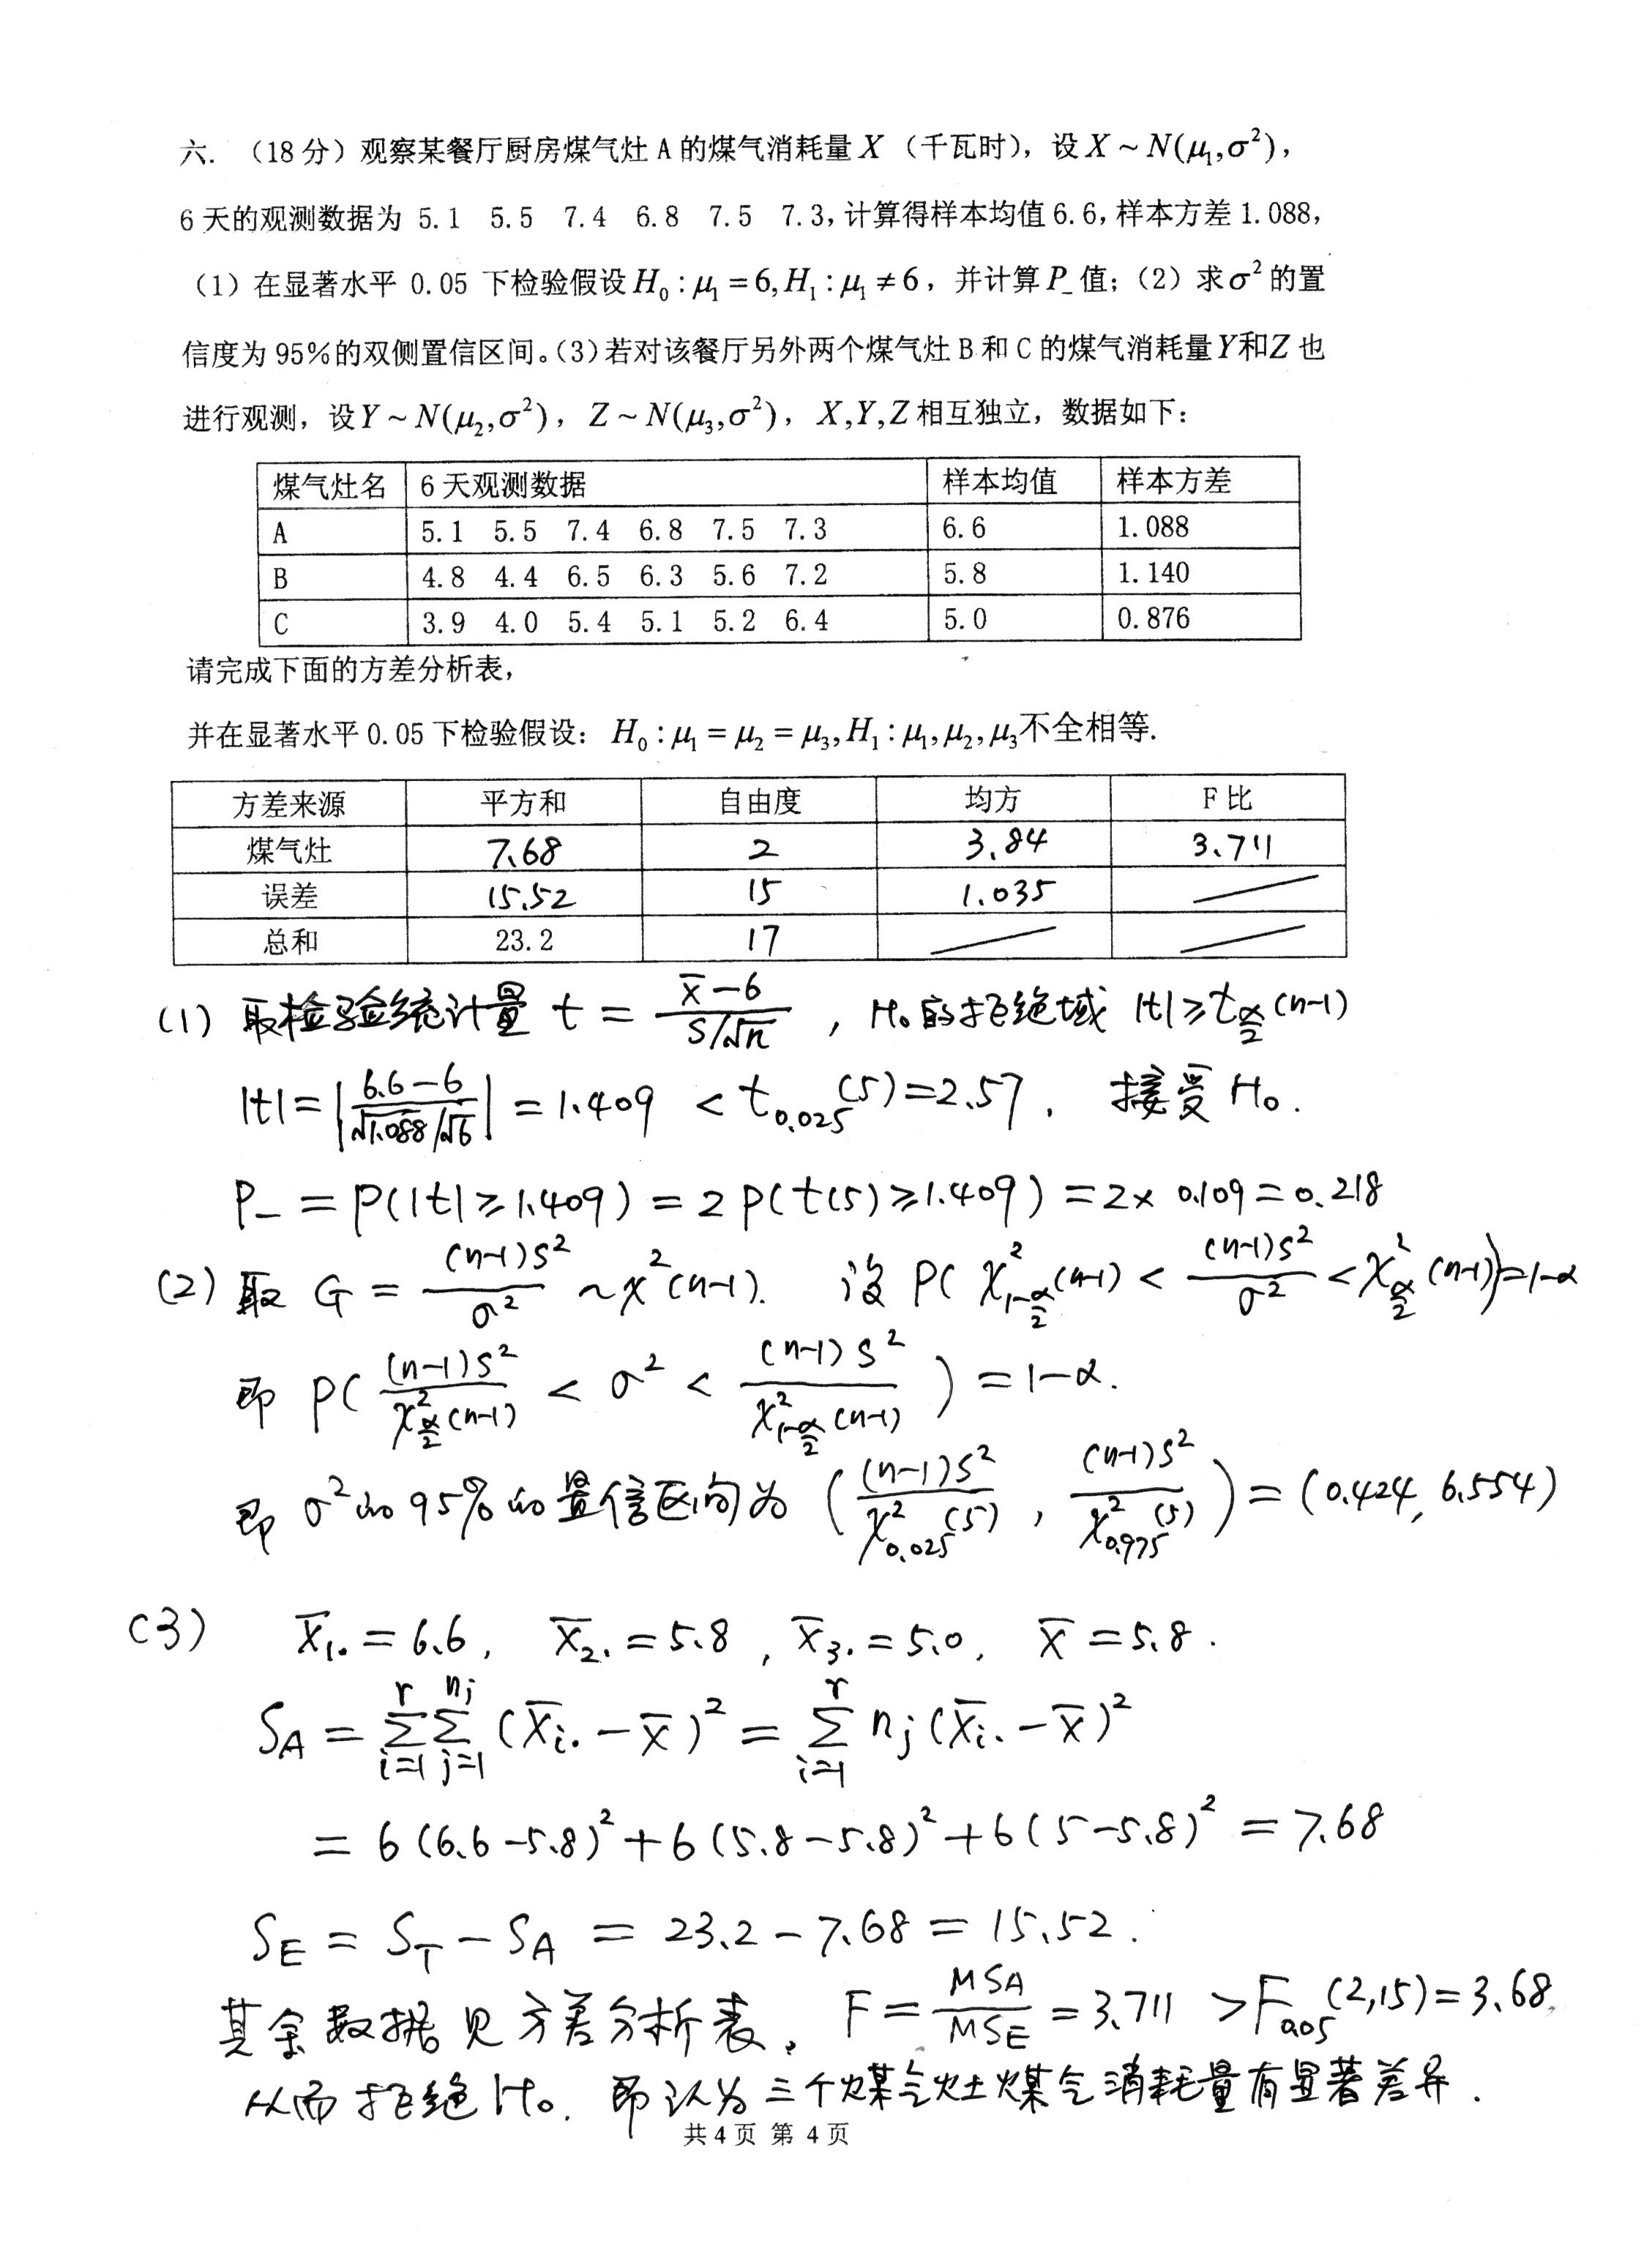 六. （18分）观察某餐厅厨房煤气灶 A 的煤气消耗量 X （千瓦时），设 X ~ N(μ₁,σ²)，
6 天的观测数据为 5.1 5.5 7.4 6.8 7.5 7.3，计算得样本均值 6.6，样本方差 1.088，
（1）在显著水平 0.05 下检验假设 H₀ : μ₁ = 6, H₁ : μ₁ ≠ 6，并计算 P_ 值；（2）求 σ² 的置
信度为 95%的双侧置信区间。（3）若对该餐厅另外两个煤气灶 B 和 C 的煤气消耗量 Y和Z 也
进行观测，设 Y ~ N(μ₂,σ²)，Z ~ N(μ₃,σ²)，X,Y,Z 相互独立，数据如下：
煤气灶名 6 天观测数据 样本均值 样本方差
A 5.1 5.5 7.4 6.8 7.5 7.3 6.6 1.088
B 4.8 4.4 6.5 6.3 5.6 7.2 5.8 1.140
C 3.9 4.0 5.4 5.1 5.2 6.4 5.0 0.876
请完成下面的方差分析表，
并在显著水平 0.05 下检验假设： H₀ : μ₁ = μ₂ = μ₃, H₁ : μ₁, μ₂, μ₃不全相等.
方差来源 平方和 自由度 均方 F 比
煤气灶 7.68 2 3.84 3.711
误差 15.52 15 1.035
总和 23.2 17
(1) 取检验统计量 t = (x̄-6)/(S/√n) , H₀的拒绝域 |t|≥t_{α/2}(n-1)
|t|=|(6.6-6)/(√1.088/√6)| = 1.409 < t_{0.025}(5)=2.57. 接受 H₀.
P_ = P(|t|≥1.409) = 2P(t(5)≥1.409) = 2× 0.109 = 0.218
(2) 取 G = (n-1)S²/σ² ~ χ²(n-1). 设 P( χ²_{1-α/2}(n-1) < (n-1)S²/σ² < χ²_{α/2}(n-1))=1-α
即 P( (n-1)S²/χ²_{α/2}(n-1) < σ² < (n-1)S²/χ²_{1-α/2}(n-1) ) = 1-α.
即 σ²的95%的置信区间为 ( (n-1)S²/χ²_{0.025}(5) , (n-1)S²/χ²_{0.975}(5) ) = (0.424, 6.554)
(3) x̄₁. = 6.6, x̄₂. = 5.8, x̄₃. = 5.0, x̄ = 5.8.
S_A = Σ_{i=1}^{r} Σ_{j=1}^{nj} (x̄i. - x̄)² = Σ_{i=1}^{r} nj (x̄i. - x̄)²
= 6 (6.6-5.8)² + 6 (5.8-5.8)² + 6 (5-5.8)² = 7.68
S_E = S_T - S_A = 23.2 - 7.68 = 15.52.
其余数据见方差分析表. F = MSA/MSE = 3.711 > F_{0.05}(2,15) = 3.68.
从而拒绝H₀. 即认为三个煤气灶煤气消耗量有显著差异.
共 4 页 第 4 页